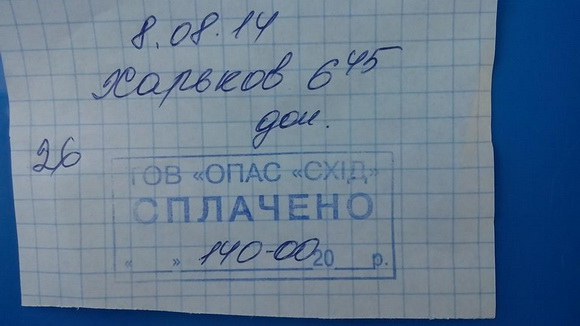 8.08.14
Харьков 6 45
дол.
26
ТОВ «ОПАС «СХІД»
СПЛАЧЕНО
«___» 140-00 20___р.